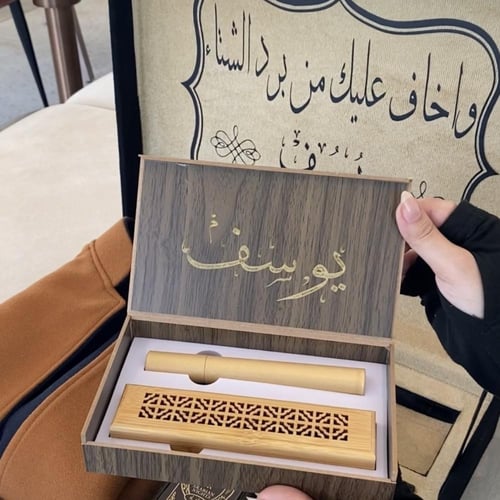 واخاف عليك من برد الشتاء
يوسف